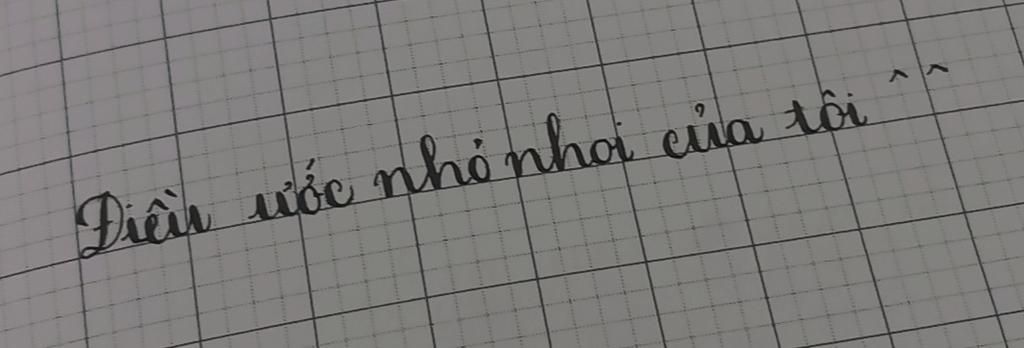 Điều ước nhỏ nhoi của tôi ^ ^